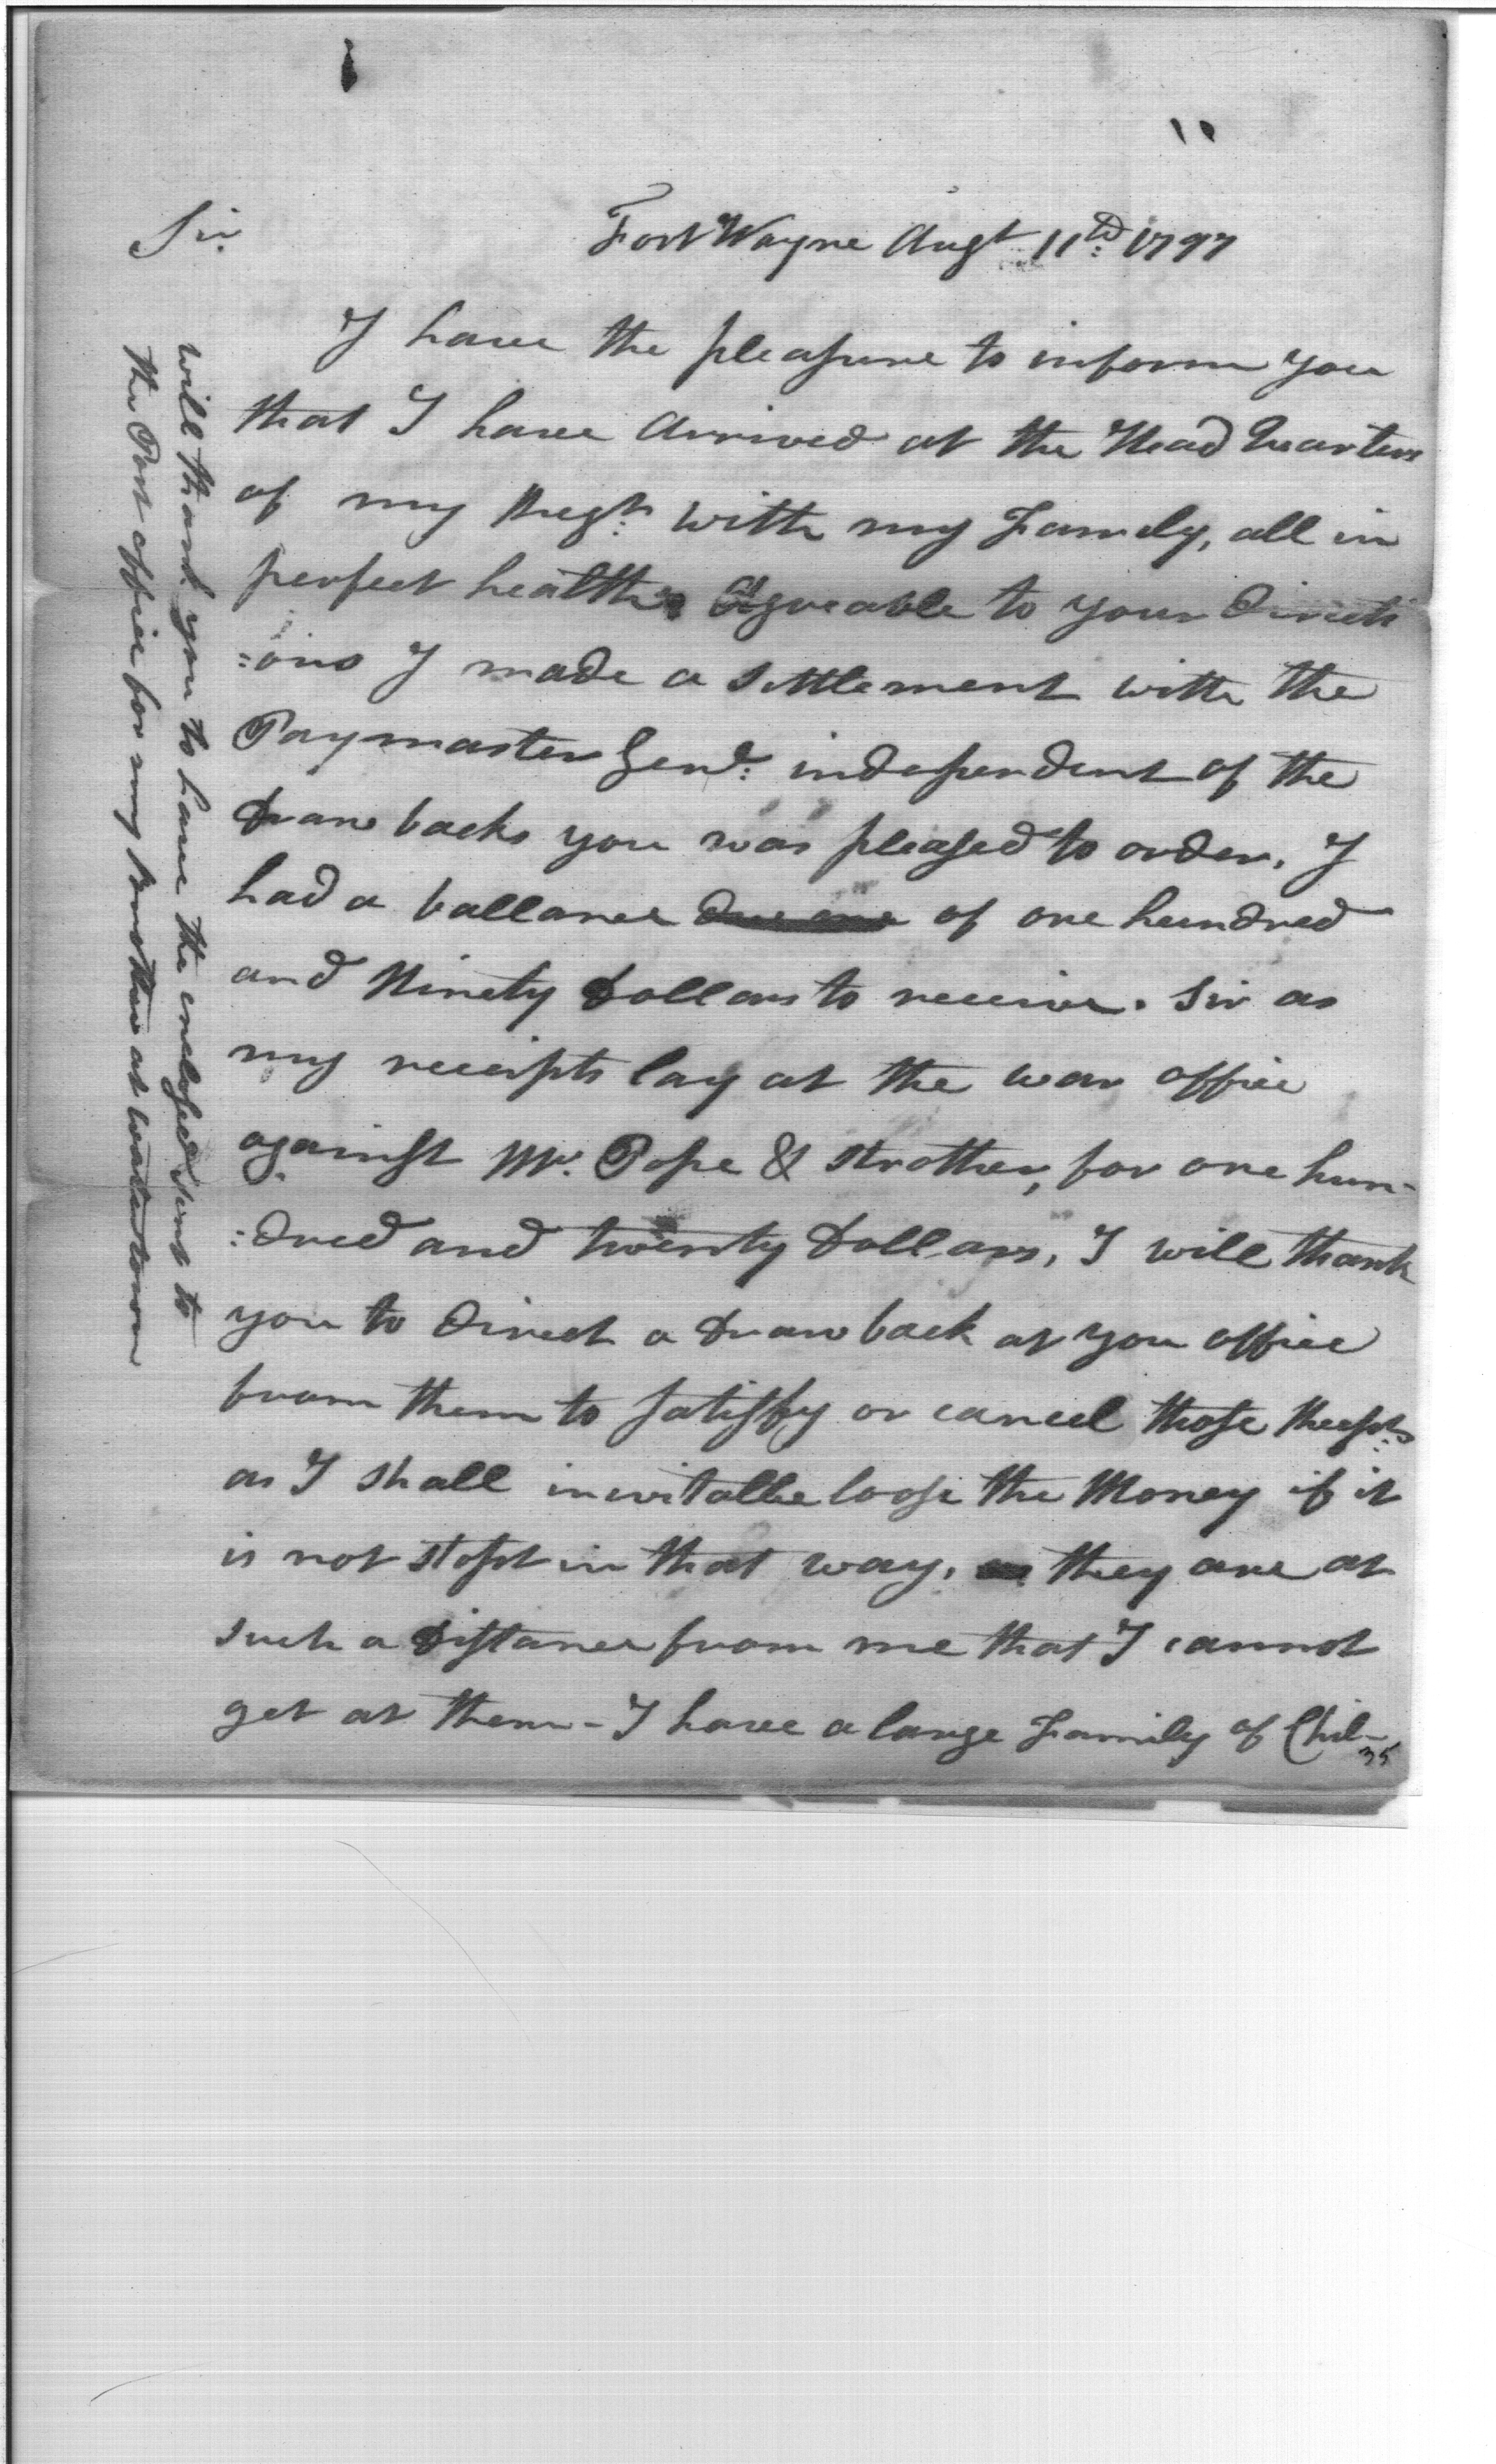 Sir.
Fort Wayne Augt 11th: 1797
I have the pleasure to inform you
that I have arrived at the Head Quarters
of my Regt: with my Family, all in
perfect health. Agreable to your directi
=ons I made a settlement with the
Paymaster Genl: independent of the
Draw backs you was pleased to order, I
had a ballance of one hundred
and Ninety Dollars to receive. Sir as
my receipts lay at the war office
against Mr. Pope & Strother, for one hun-
=dred and twenty Dollars, I will thank
you to direct a Draw back at you office
from them to satisfy or cancel those Recpts:
as I shall inevitalbe loose the Money if it
is not stopt in that way, they are at
such a Distance from me that I cannot
get at them - I have a large Family of Chil-
35
will thank you to have the inclosed sent to
the Post office for my Brother at Watertown